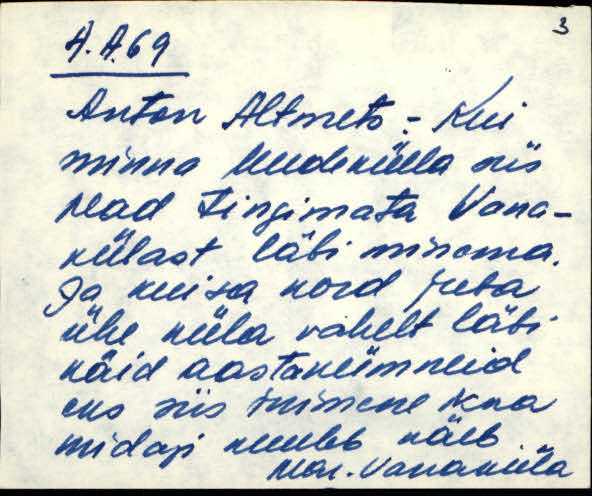 3
A.A.69
Anton Altmets :- Kui
minna Uudekülla siis
pead tingimata Vana-
külast läbi minema.
Ja kui sa kord juba
ühe küla vahelt läbi
käid aastakümneid
eks siis inimene ikka
midagi kuuleb näeb
Vanaküla